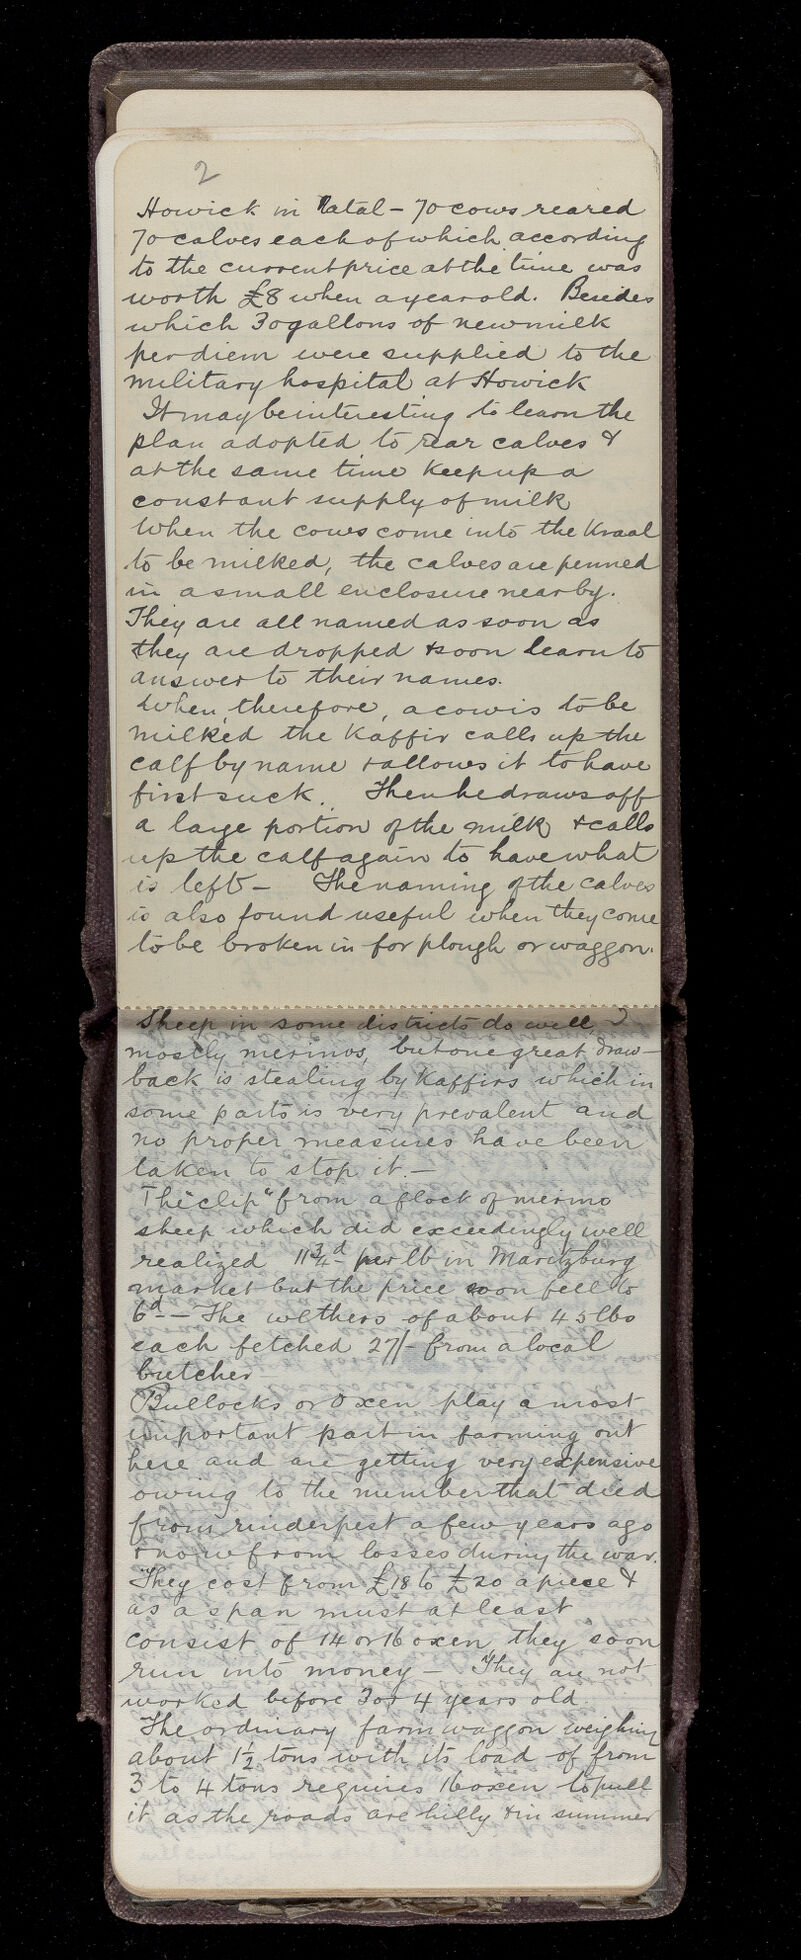 2
Howick in Natal - 70 cows reared
70 calves each of which according
to the current price at the time was
worth £8 when a year old. Besides
which 30 gallons of new milk
per diem were supplied to the
military hospital at Howick
It may be interesting to learn the
plan adopted to rear calves &
at the same time keep up a
constant supply of milk
When the cows come into the Kraal
to be milked, the calves are penned
in a small enclosure near by.
They are all named as soon as
they are dropped & soon learn to
answer to their names.
When, therefore, a cow is to be
milked the Kaffir calls up the
calf by name & allows it to have
first suck. Then he draws off
a large portion of the milk & calls
up the calf again to have what
is left - The naming of the calves
is also found useful when they come
to be broken in for plough or waggon.
Sheep in some districts do well,
mostly merinos, but one great draw-
back is stealing by Kaffirs which in
some parts is very prevalent and
no proper measures have been
taken to stop it. -
The "clip" from a flock of merino
sheep which did exceedingly well
realized 11¾d per lb in Maritzburg
market but the price soon fell to
6d - The wethers of about 45 lbs
each fetched 27/- from a local
butcher
Bullocks or Oxen play a most
important part in farming out
here and are getting very expensive
owing to the number that died
from rinderpest a few years ago
& now from losses during the war.
They cost from £18 to £20 a piece &
as a span must at least
consist of 14 or 16 oxen, they soon
run into money - They are not
worked before 3 or 4 years old.
The ordinary farm waggon weighing
about 1½ tons with its load of from
3 to 4 tons requires 16 oxen to pull
it as the roads are hilly & in summer